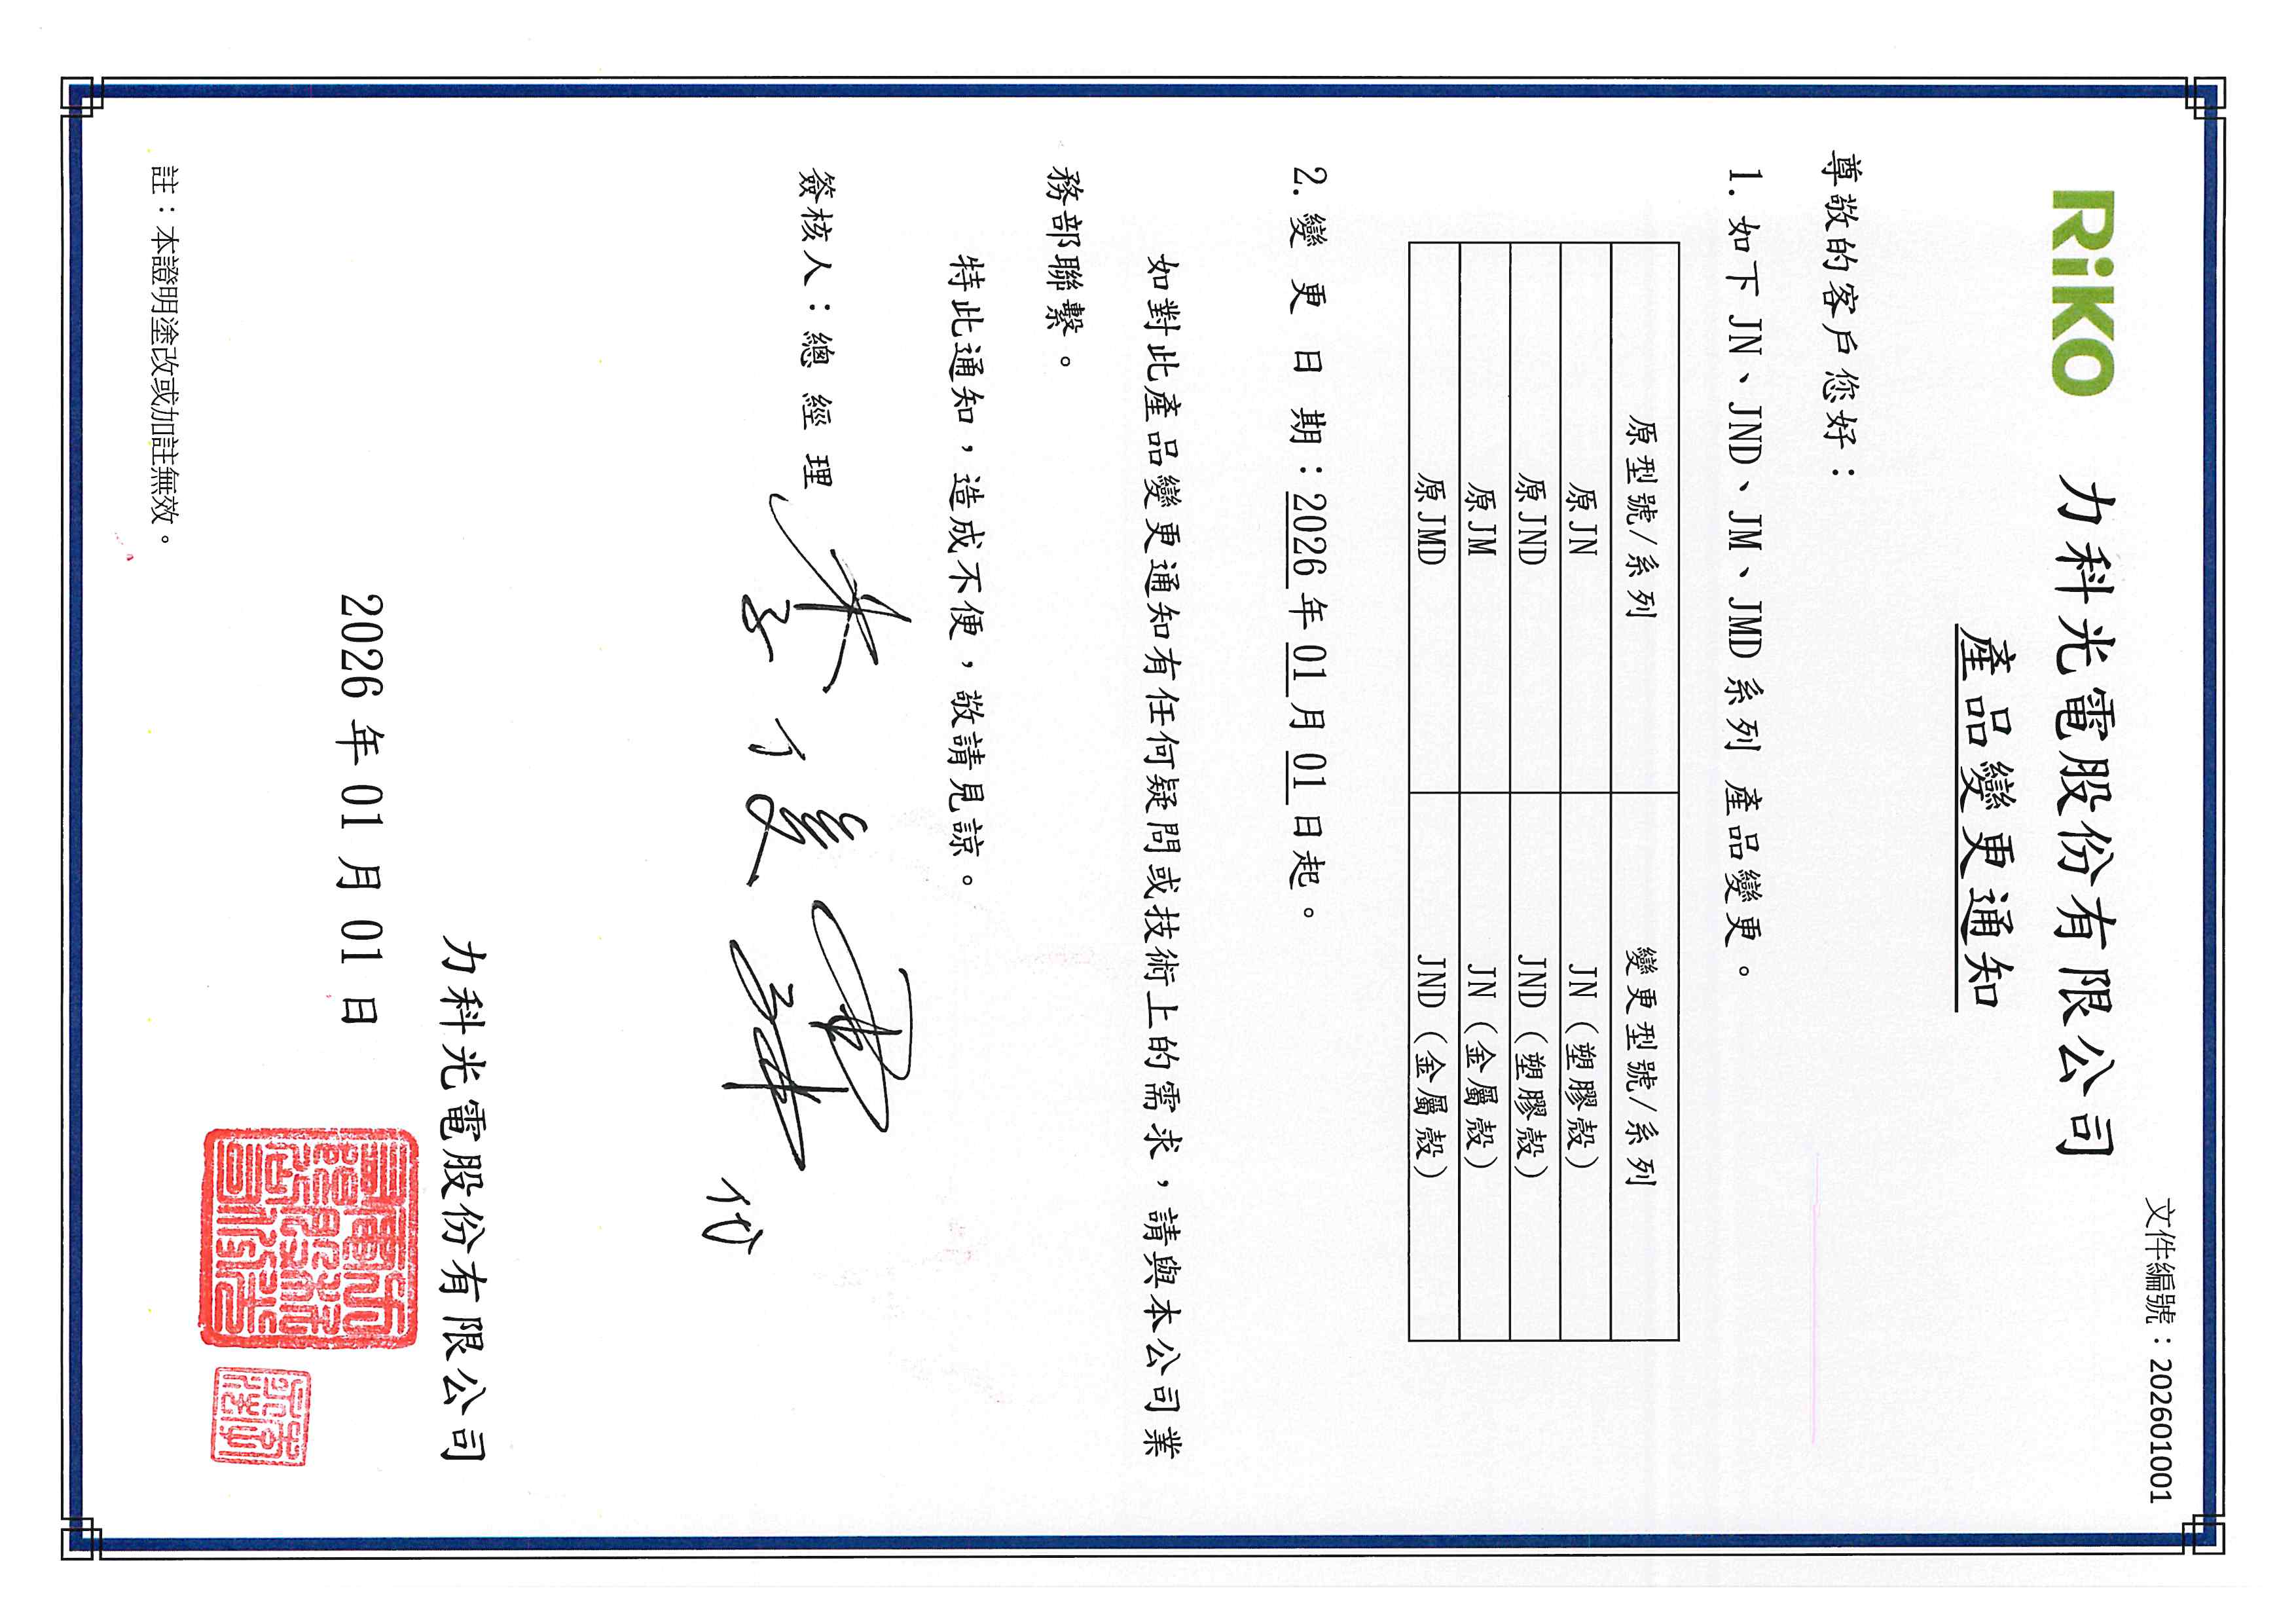 文件編號：202601001
RiKO 力科光電股份有限公司
產品變更通知
尊敬的客戶您好：
1. 如下 JN、JND、JM、JMD 系列 產品變更。
原型號/系列 變更型號/系列
原JN JN（塑膠殼）
原JND JND（塑膠殼）
原JM JN（金屬殼）
原JMD JND（金屬殼）
2. 變 更 日 期：2026 年 01 月 01 日起。
如對此產品變更通知有任何疑問或技術上的需求，請與本公司業
務部聯繫。
特此通知，造成不便，敬請見諒。
簽核人：總 經 理
代
力科光電股份有限公司
2026 年 01 月 01 日
註：本證明塗改或加註無效。